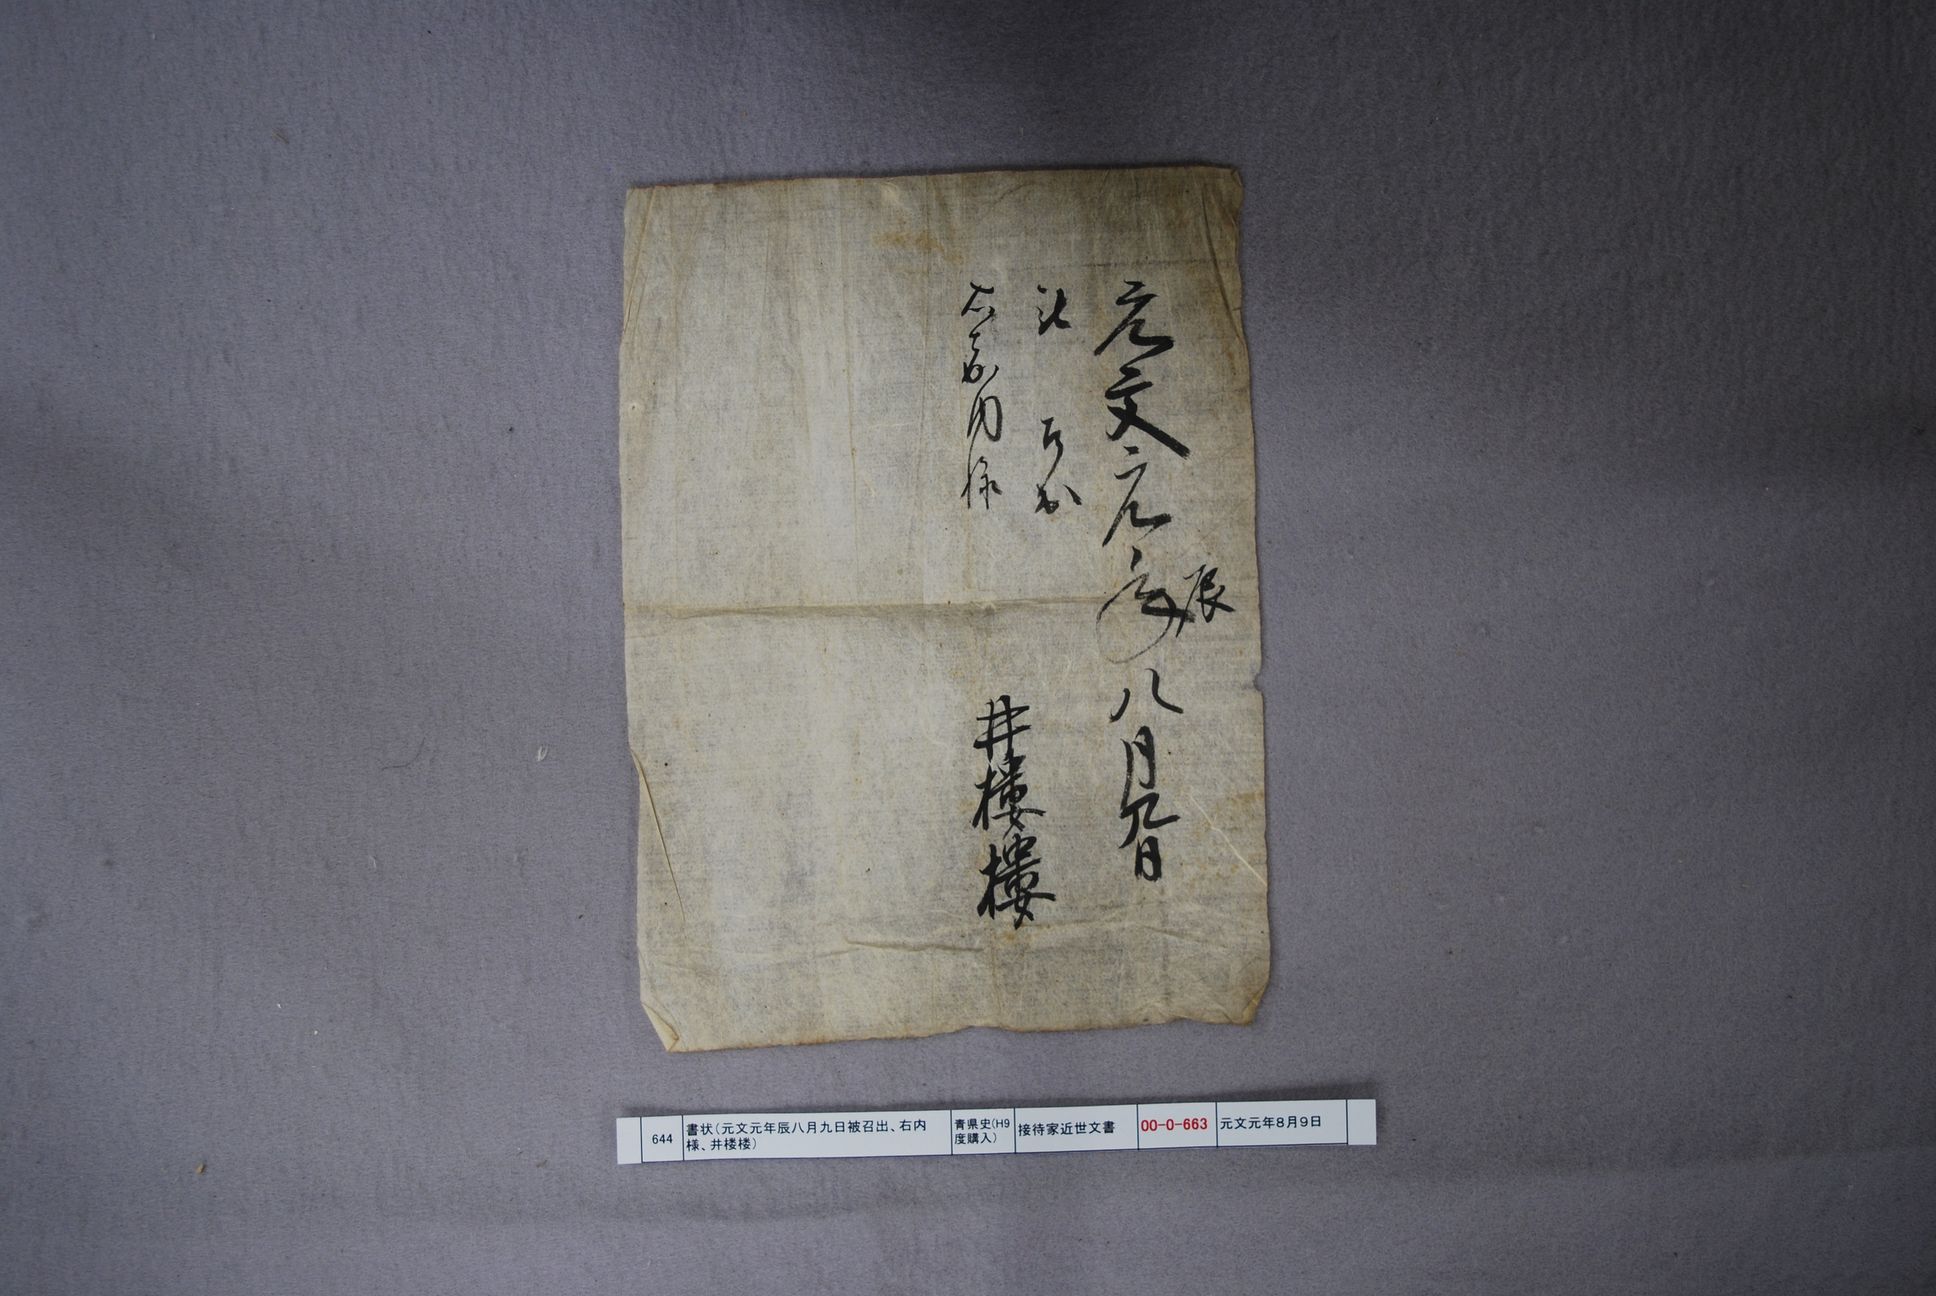 元文元年辰八月九日
被 召出
右 内様
井楼楼
644
書状(元文元年辰八月九日被召出、右内
様、井楼楼)
青県史(H9
度購入)
接待家近世文書
00-0-663
元文元年8月9日